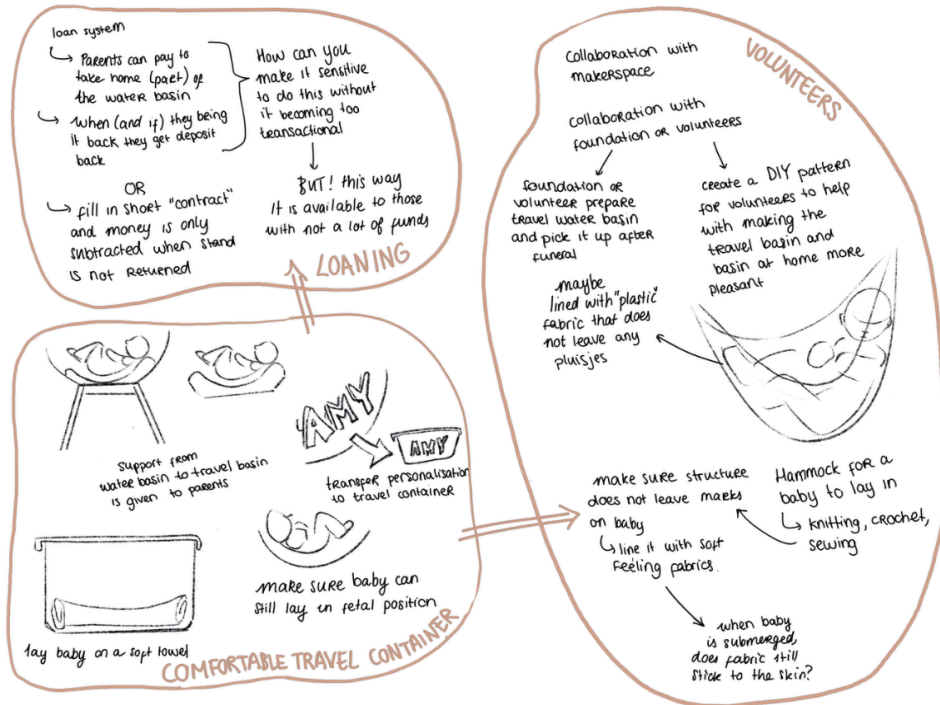 loan system
Parents can pay to
take home (part) of
the water basin
when (and if) they being
it back they get deposit
back
OR
fill in short "contract"
and money is only
subtracted when stand
is not returned
How can you
make it sensitive
to do this without
it becoming too
transactional
BUT! this way
It is available to those
with not a lot of funds
LOANING
support from
water basin to travel basin
is given to parents
AMY
AMY
transfer personalisation
to travel container
lay baby on a soft towel
make sure baby can
still lay in fetal position
COMFORTABLE TRAVEL CONTAINER
VOLUNTEERS
Collaboration with
makerspace
collaboration with
foundation or volunteers
foundation or
volunteer prepare
travel water basin
and pick it up after
funeral
create a DIY pattern
for volunteers to help
with making the
travel basin and
basin at home more
pleasant
maybe
lined with "plastic"
fabric that does
not leave any
pluisjes
make sure structure
does not leave marks
on baby
line it with soft
feeling fabrics.
Hammock for a
baby to lay in
knitting, crochet,
sewing
when baby
is submerged,
does fabric still
stick to the skin?